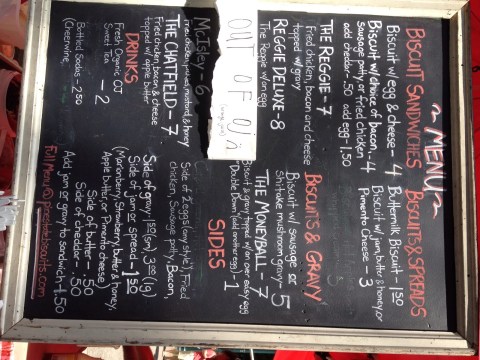 ~ MENU ~
BISCUIT SANDWICHES
Biscuit w/ egg & cheese - 4
Biscuit w/ choice of bacon, - 4
sausage patty or fried chicken
add cheddar - .50 add egg - 1.50
THE REGGIE - 7
Fried chicken, bacon and cheese
topped w/ gravy
REGGIE DELUXE - 8
The Reggie w/ an egg
OUT OF
McIsley - 6
Fried chicken, pickles, mustard, & honey
THE CHATFIELD - 7
Fried chicken, bacon & cheese
topped w/ apple butter
DRINKS
Fresh Organic OJ
Sweet Tea - 2
Bottled Sodas - 2.50
Cheerwine,
BISCUITS & SPREADS
Buttermilk Biscuit - 1.50
Biscuit w/ jam, butter & honey, or
Pimento Cheese - 3
BISCUITS & GRAVY
Biscuit w/ sausage or
Shiitake mushroom gravy - 5
THE MONEYBALL - 7
Biscuit & gravy topped w/ an over easy egg
Double Down (add another egg) - 1
SIDES
Side of 2 eggs (any style), Fried
chicken, Sausage patty, Bacon,
Side of gravy - 1.50 (sm), 3.00 (lg)
Side of jam or spread - 1.50
(Marionberry, Strawberry, butter & honey,
Apple butter, or Pimento cheese)
Side of butter - .50
Side of cheddar - .50
Add jam or gravy to sandwich - 1.50
Full Menu @ pinestatebiscuits.com